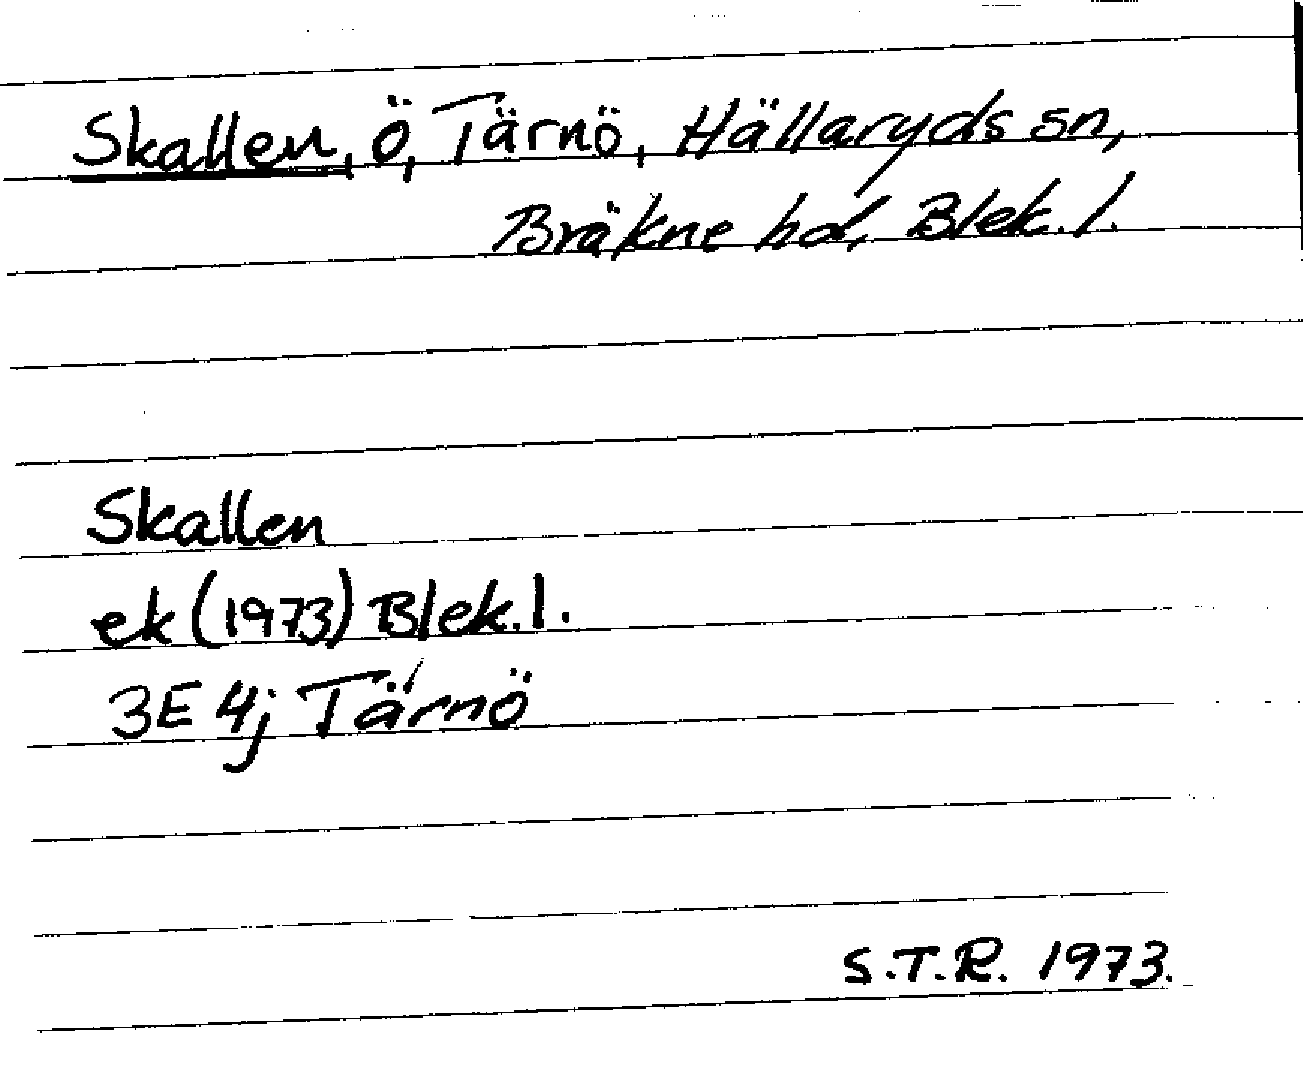 Skallen, ö, Tärnö, Hällaryds sn,
Bräkne hd, Blek. l.
Skallen
ek (1973) Blek. l.
3E 4j Tärnö
S.T.R. 1973.